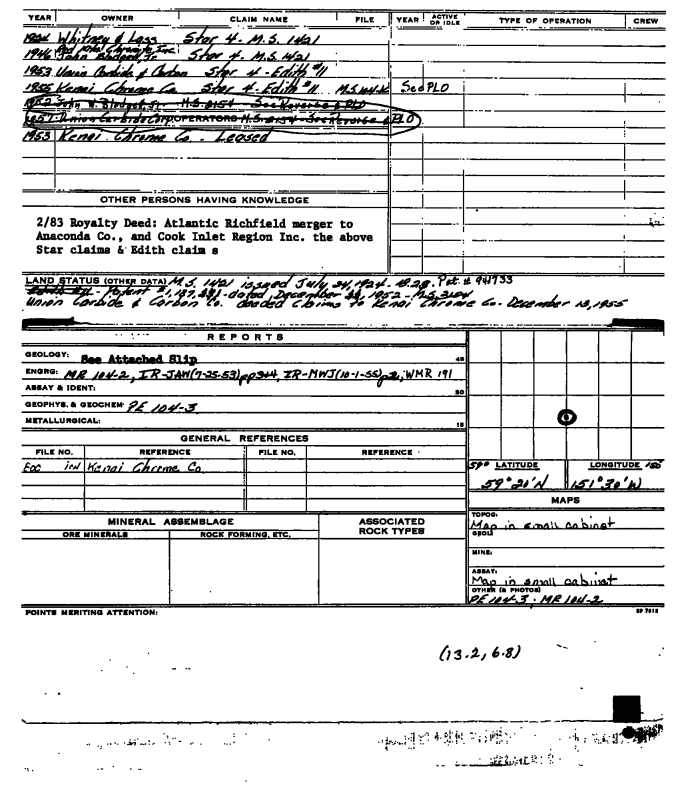 YEAR OWNER CLAIM NAME FILE YEAR ACTIVE OR IDLE TYPE OF OPERATION CREW
1924 Whitney & Lass Star 4. M.S. 1421
1946 John Blodget, Jr. Star 4. M.S. 1421
1953 Union Carbide & Carbon Star 4 - Edith #11
1955 Kenai Chrome Co Star 4 - Edith #11 See PLO
1952 John W. Blodget, Jr. M.S. 2154 See Reverse & PLO
1957 Union Carbide Corp OPERATORS M.S. 2154 - See Reverse & PLO
1953 Kenai Chrome Co. - Leased
OTHER PERSONS HAVING KNOWLEDGE
2/83 Royalty Deed: Atlantic Richfield merger to
Anaconda Co., and Cook Inlet Region Inc. the above
Star claims & Edith claim s
LAND STATUS (OTHER DATA) M.S. 1421 issued July 24, 1924 - Pat. # 941733
Patent - dated December 1952 -
Union Carbide & Carbon Co. deeded claims to Kenai Chrome Co. December 13, 1955
REPORTS
GEOLOGY: See Attached Slip 45
ENGRG: MR 104-2, IR-JAW (7-25-53) pp3+4, IR-MWJ (10-1-55) p2, WMR 191
ASSAY & IDENT: 30
GEOPHYS. & GEOCHEM: PE 104-3
METALLURGICAL: 15
GENERAL REFERENCES
FILE NO. REFERENCE FILE NO. REFERENCE
Kenai Chrome Co.
59° LATITUDE LONGITUDE 150
59° 21' N 151° 30' W
MAPS
MINERAL ASSEMBLAGE ASSOCIATED ROCK TYPES
ORE MINERALS ROCK FORMING, ETC.
TOPOG:
Map in small cabinet
GEOL:
MINE:
ASSAY:
Map in small cabinet
OTHER (& PHOTOS)
PE 104-3 - MR 104-2
POINTS MERITING ATTENTION:
(13.2, 6.8)